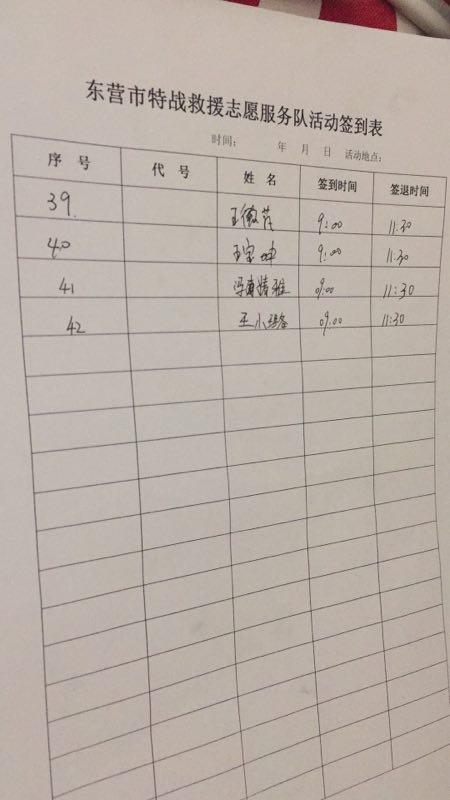 东营市特战救援志愿服务队活动签到表
时间: 年 月 日 活动地点:
序 号 代 号 姓 名 签到时间 签退时间
39. 9:00 11:30
40 王宝坤 9:00 11:30
41 09:00 11:30
42 王小 09:00 11:30